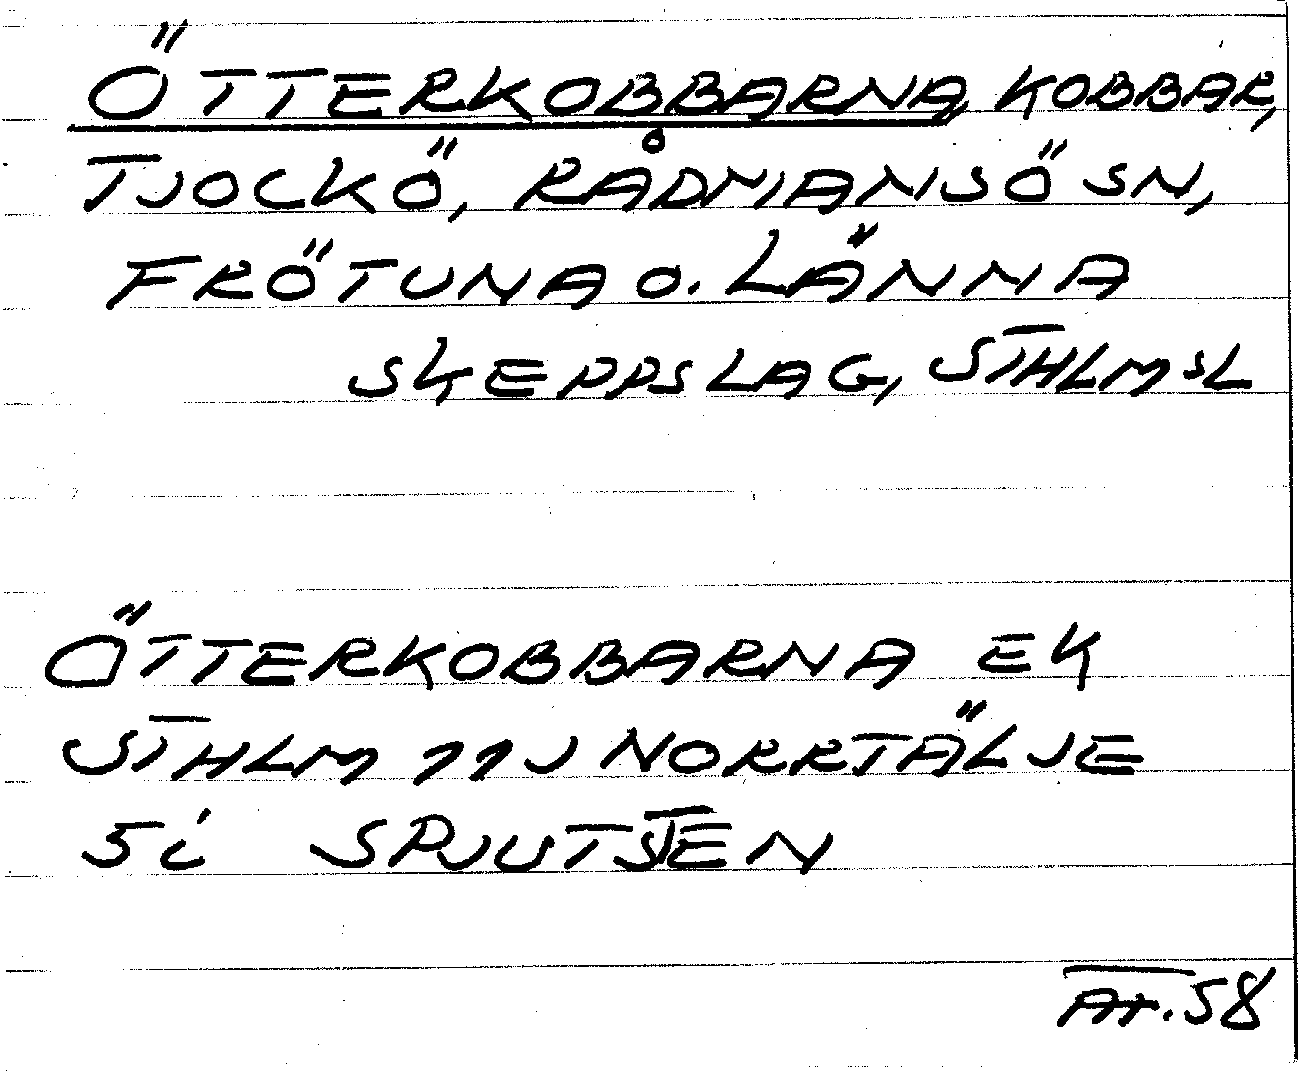 ÖTTERKOBBARNA, KOBBAR,
TJOCKÖ, RÅDMANSÖ SN,
FRÖTUNA O. LÄNNA
SKEPPSLAG, STHLMSL
ÖTTERKOBBARNA EK
STHLM 11J NORRTÄLJE
5i SPJUTSTEN
58